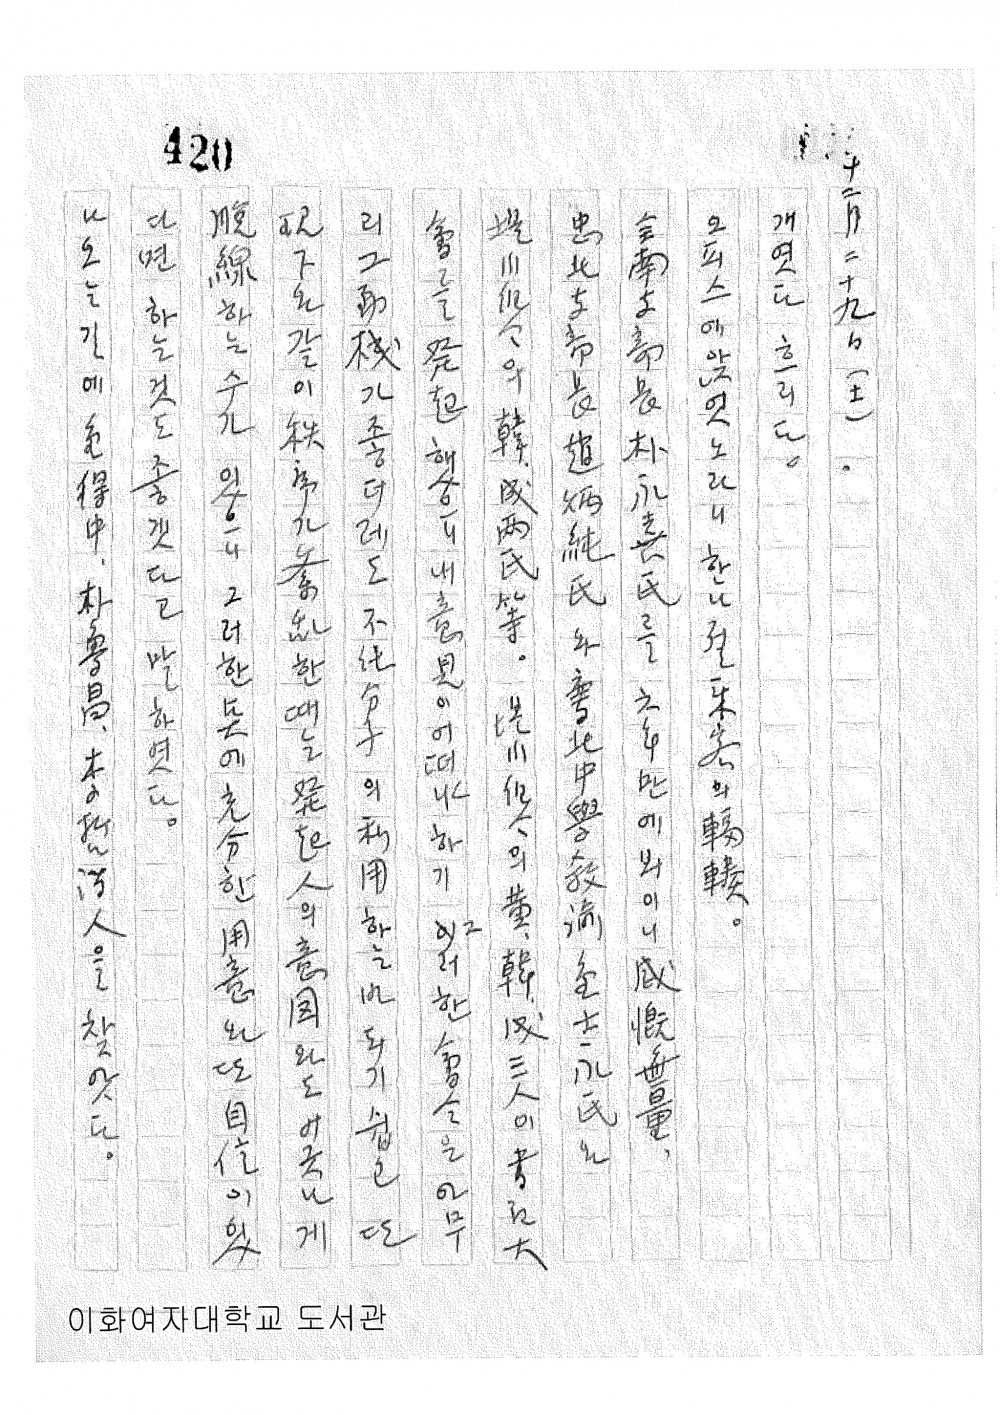 420
十二月二十九日(土)。
개엿다 흐리다。
오피스에 앉엇노라니 한나절 来客의 輻輳。
全南支部長 朴永喜氏를 六年만에 뵈이니 感慨無量、
忠北支部長 趙炳純氏와 서울北中學敎諭 金士永氏와
堤川組合의 韓、成 两氏 等。 堤川組合의 黃、韓、成 三人이 書記大
會를 発起햇으니 내 意見이 어떠냐 하기 그러한 會合은 아무
리 그 動機가 좋더레도 不純分子의 利用하는 바 되기 쉽고 또
現下와 같이 秩序가 紊乱한 때는 発起人의 意図와도 어긋나게
脫線하는 수가 잇으니 그러한 点에 充分한 用意와 또 自信이 잇
다면 하는 것도 좋겟다고 말하엿다。
나오는 길에 金得中、朴魯昌、李 諸人을 찾앗다。
이화여자대학교 도서관